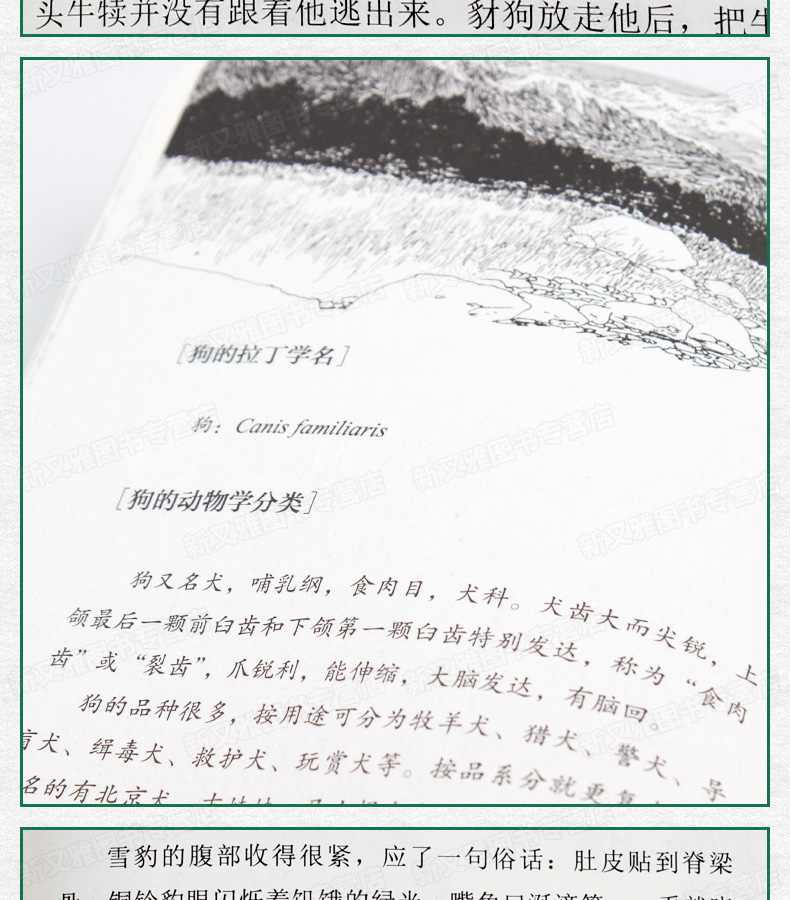 头牛犊并没有跟着他逃出来。豺狗放走他后，把牛
[狗的拉丁学名]
狗：Canis familiaris
[狗的动物学分类]
狗又名犬，哺乳纲，食肉目，犬科。犬齿大而尖锐，上
颌最后一颗前臼齿和下颌第一颗臼齿特别发达，称为“食肉
齿”或“裂齿”，爪锐利，能伸缩，大脑发达，有脑回。
狗的品种很多，按用途可分为牧羊犬、猎犬、警犬、导
盲犬、缉毒犬、救护犬、玩赏犬等。按品系分就更复
名的有北京犬
雪豹的腹部收得很紧，应了一句俗话：肚皮贴到脊梁
铜铃豹眼闪烁着饥饿的绿光
新又雅图书专营店